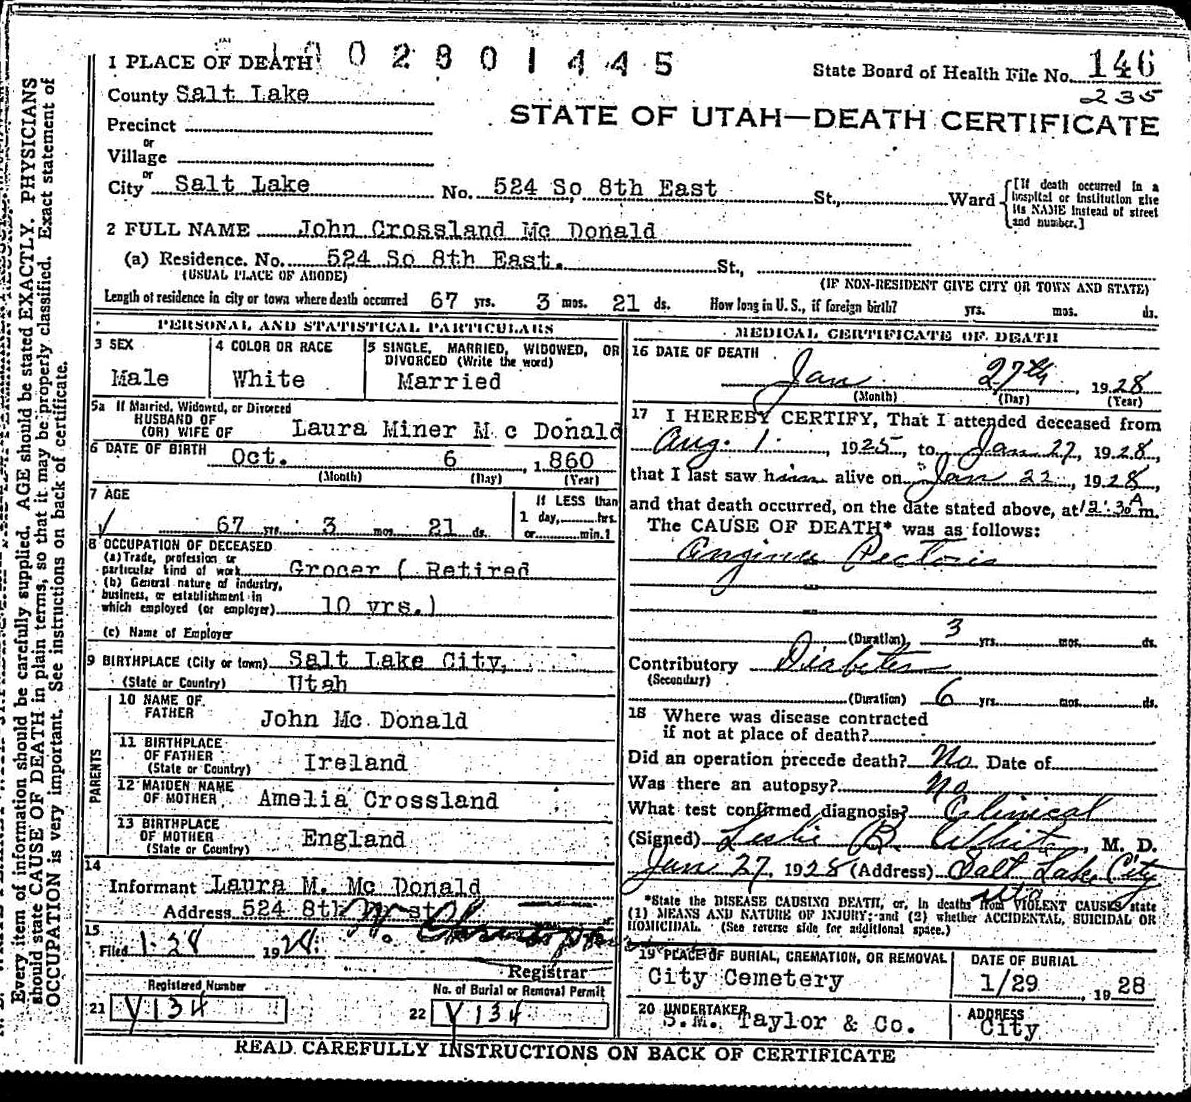 1 PLACE OF DEATH
1002801445
State Board of Health File No. 146
235
County Salt Lake
STATE OF UTAH—DEATH CERTIFICATE
Precinct
or
Village
or
City Salt Lake No. 524 So 8th East St., Ward
[If death occurred in a hospital or institution give its NAME instead of street and number.]
2 FULL NAME John Crossland Mc Donald
(a) Residence. No. 524 So 8th East. St.,
(USUAL PLACE OF ABODE)
(IF NON-RESIDENT GIVE CITY OR TOWN AND STATE)
Length of residence in city or town where death occurred 67 yrs. 3 mos. 21 ds. How long in U.S., if foreign birth? yrs. mos. ds.
PERSONAL AND STATISTICAL PARTICULARS
3 SEX
Male
4 COLOR OR RACE
White
5 SINGLE, MARRIED, WIDOWED, OR
DIVORCED (Write the word)
Married
5a If Married, Widowed, or Divorced
HUSBAND OF
(OR) WIFE OF Laura Miner Mc Donald
6 DATE OF BIRTH Oct. 6, 1860
(Month) (Day) (Year)
7 AGE
67 yrs. 3 mos. 21 ds.
If LESS than
1 day, hrs.
or min.?
8 OCCUPATION OF DECEASED
(a) Trade, profession or
particular kind of work Grocer ( Retired
(b) General nature of industry,
business, or establishment in
which employed (or employer) 10 yrs.)
(c) Name of Employer
9 BIRTHPLACE (City or town) Salt Lake City,
(State or Country) Utah
PARENTS
10 NAME OF
FATHER John Mc Donald
11 BIRTHPLACE
OF FATHER
(State or Country) Ireland
12 MAIDEN NAME
OF MOTHER Amelia Crossland
13 BIRTHPLACE
OF MOTHER
(State or Country) England
14
Informant Laura M. Mc Donald
Address 524 8th
15
Filed 1-28 1928.
Registrar
Registered Number
21 Y134
No. of Burial or Removal Permit
22 Y134
MEDICAL CERTIFICATE OF DEATH
16 DATE OF DEATH
Jan 27th, 1928
(Month) (Day) (Year)
17 I HEREBY CERTIFY, That I attended deceased from
Aug. 1, 1925 to Jan 27, 1928,
that I last saw him alive on Jan 22, 1928,
and that death occurred, on the date stated above, at 12:30 A m.
The CAUSE OF DEATH* was as follows:
Angina Pectoris
(Duration) 3 yrs. mos. ds.
Contributory Diabetes
(Secondary)
(Duration) 6 yrs. mos. ds.
18 Where was disease contracted
if not at place of death?
Did an operation precede death? No Date of
Was there an autopsy? No
What test confirmed diagnosis? Clinical
(Signed) Leslie B. White, M. D.
Jan 27, 1928 (Address) Salt Lake City
*State the DISEASE CAUSING DEATH, or, in deaths from VIOLENT CAUSES state
(1) MEANS AND NATURE OF INJURY; and (2) whether ACCIDENTAL, SUICIDAL OR
HOMICIDAL. (See reverse side for additional space.)
19 PLACE OF BURIAL, CREMATION, OR REMOVAL
City Cemetery
DATE OF BURIAL
1/29, 1928
20 UNDERTAKER
S.M. Taylor & Co.
ADDRESS
City
READ CAREFULLY INSTRUCTIONS ON BACK OF CERTIFICATE
Every item of information should be carefully supplied. AGE should be stated EXACTLY. PHYSICIANS
should state CAUSE OF DEATH in plain terms, so that it may be properly classified. Exact statement of
OCCUPATION is very important. See instructions on back of certificate.